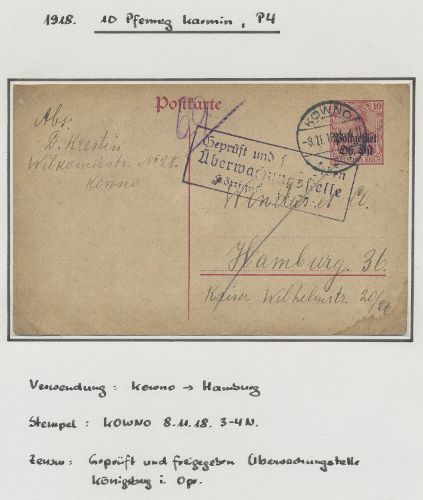 1918. 10 Pfennig Karmin, P4
Postkarte
Abs:
D. Krestin
Kowno
KOWNO
-8.11.18
10
Postgebiet
Ob. Ost
DEUTSCHES REICH
Geprüft und
Überwachungsstelle
Hamburg. 36.
Kaiser Wilhelmstr. 20/26
Verwendung: Kowno → Hamburg
Stempel: KOWNO 8.11.18. 3-4N.
Zensur: Geprüft und freigegeben Überwachungstelle
Königsberg i. Opr.